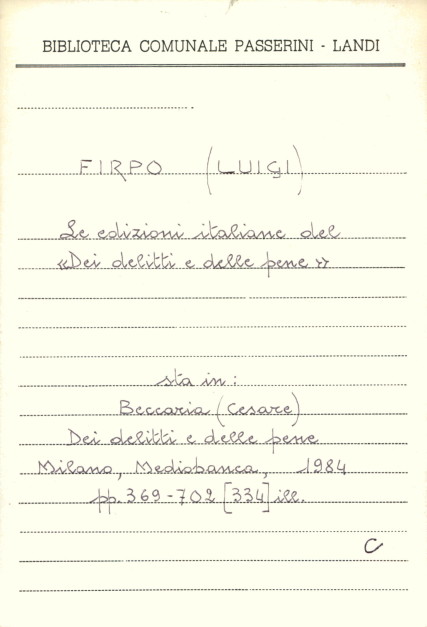 BIBLIOTECA COMUNALE PASSERINI - LANDI
FIRPO (LUIGI)
Le edizioni italiane del
«Dei delitti e delle pene»
sta in:
Beccaria (Cesare)
Dei delitti e delle pene
Milano, Mediobanca, 1984
pp. 369-702 [334] ill.
C